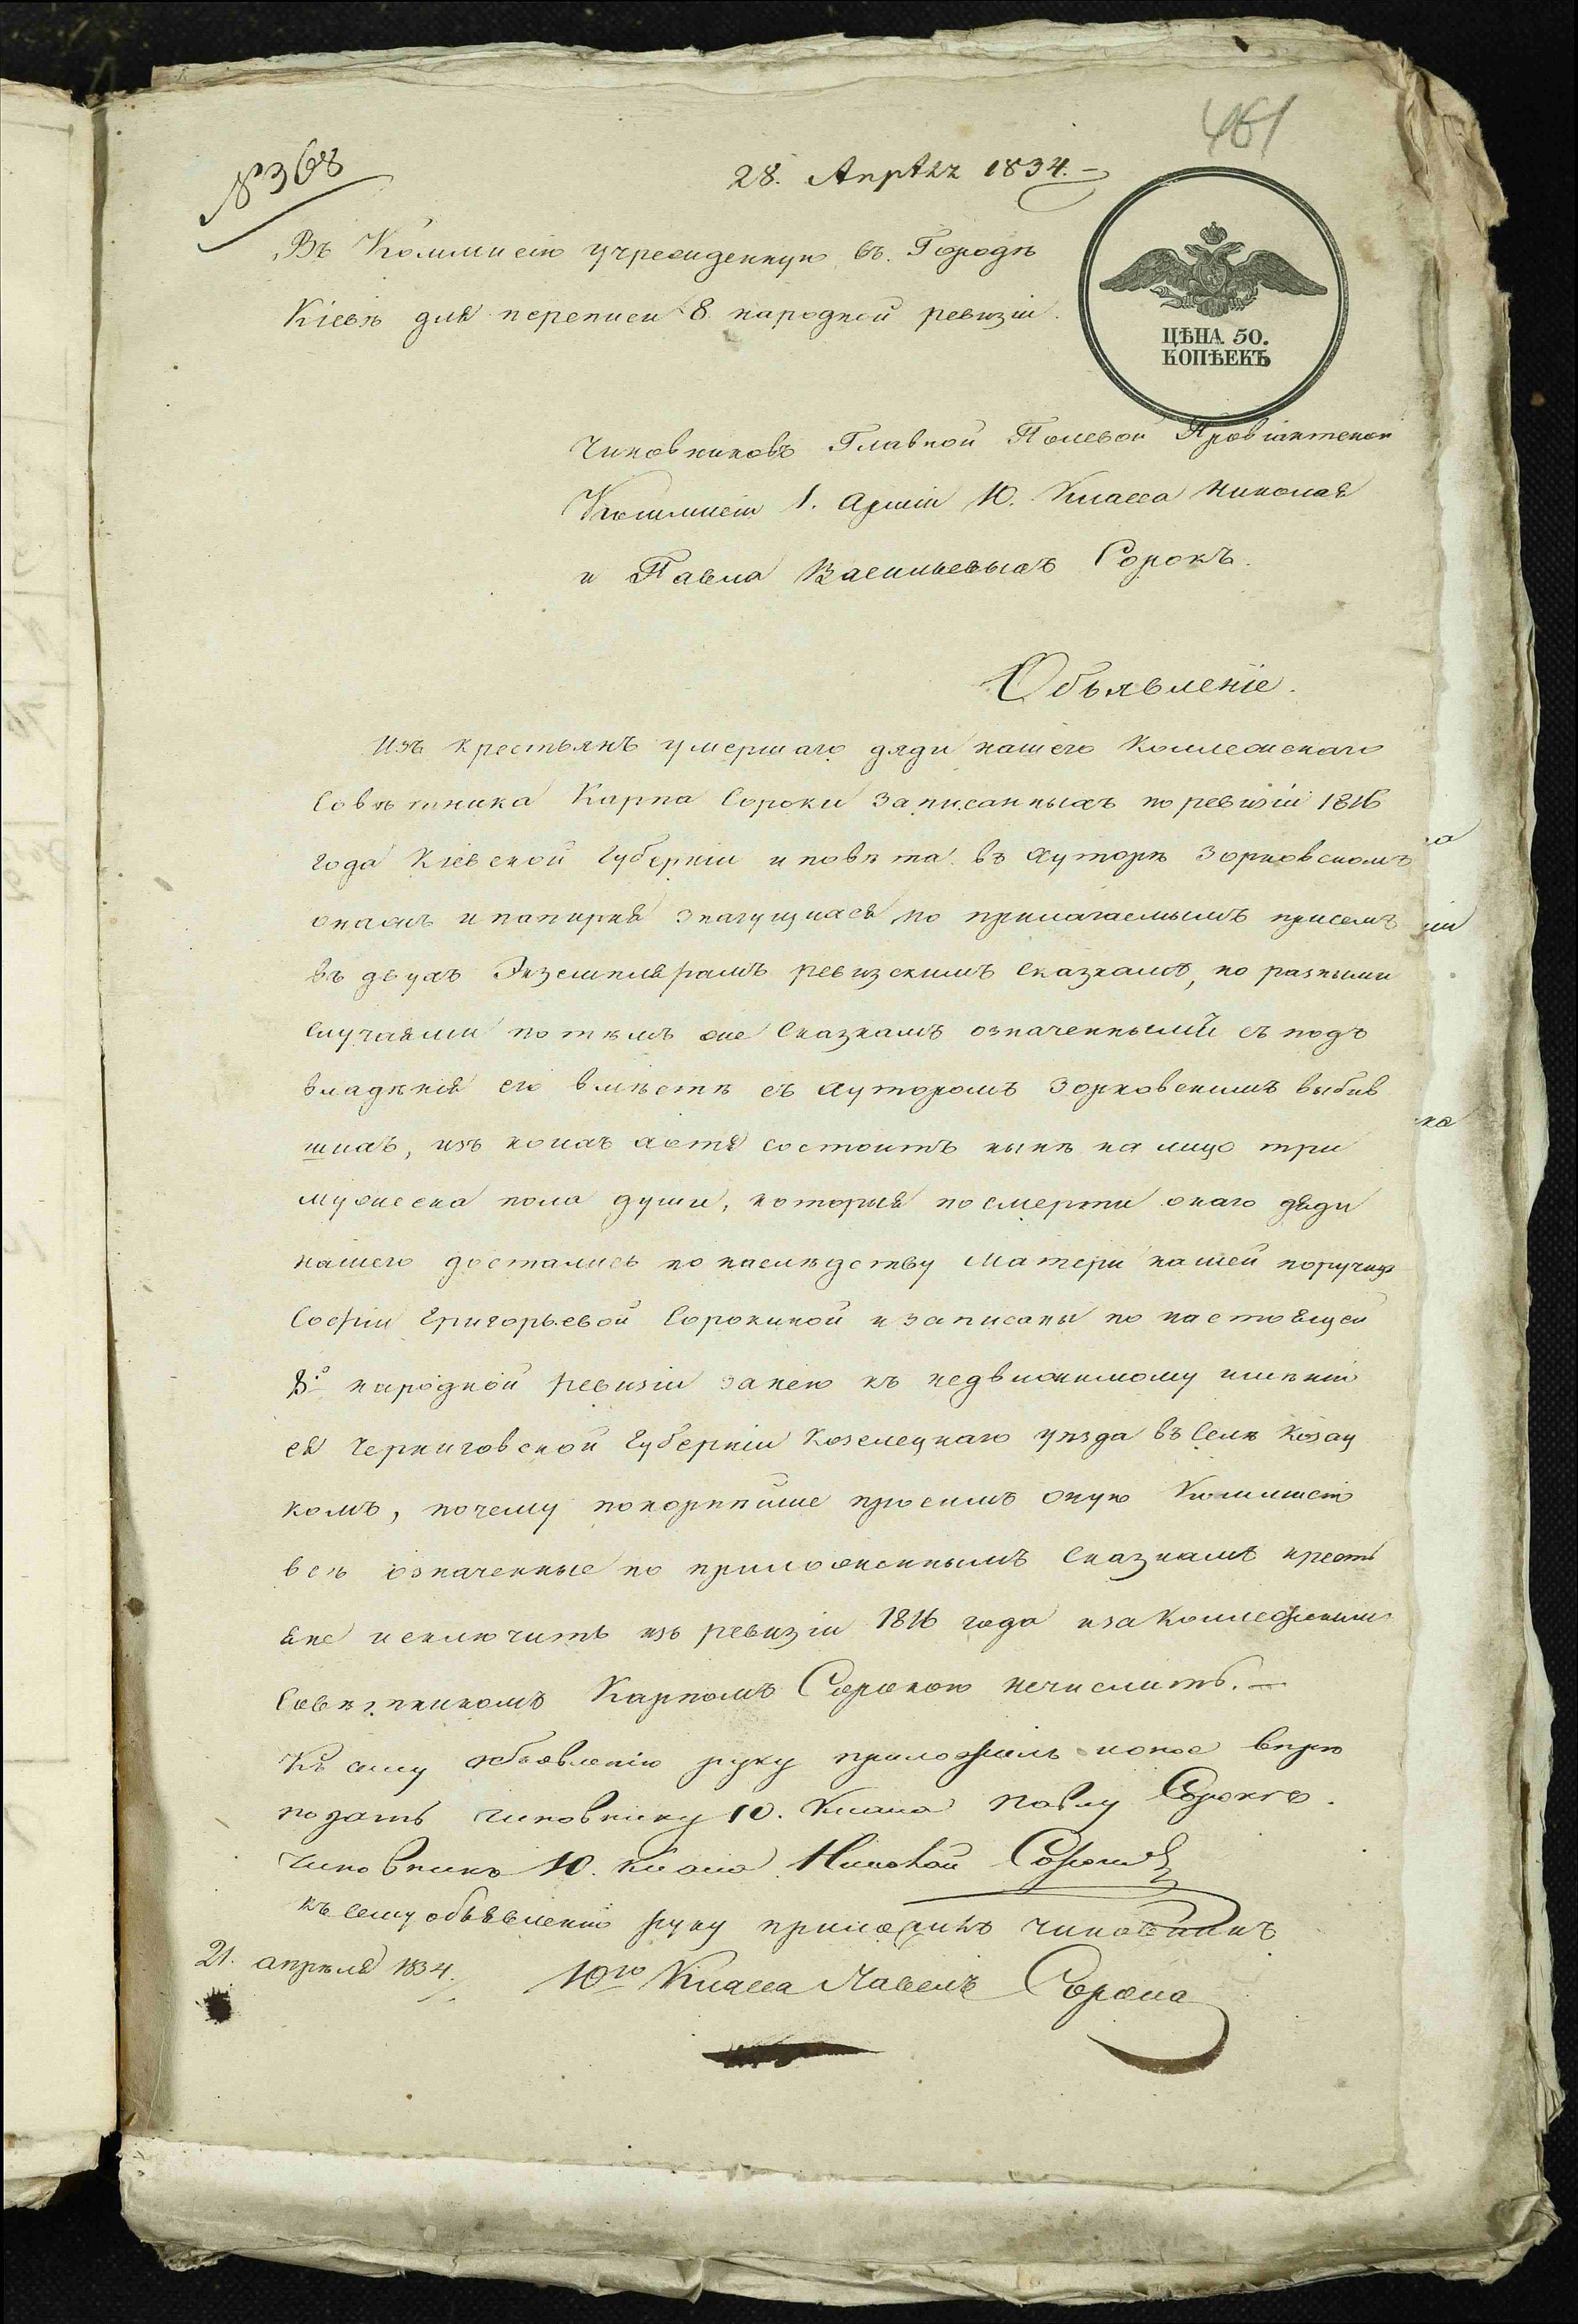 461
№ 368
28. Апрѣля 1834.
Въ Коммисію учрежденную въ. Городѣ
Кіевѣ для переписи 8 народной ревизіи.
ЦѢНА 50.
КОПѢЕКЪ
Чиновниковъ Главной Полевой Провіантской
Коммисіи 1. Арміи 10. Класса Николая
и Павла Васильевыхъ Сорокъ.
Объявленіе.
Изъ крестьянъ умершаго дяди нашего Коллежскаго
Совѣтника Карпа Сороки записанныхъ по ревизіи 1816
года Кіевской Губерніи и повѣта въ хуторѣ Зорковскомъ
онахъ и папирня значущихся, по прилагаемымъ присемъ
въ двухъ Экземплярахъ ревизскимъ сказкамъ, по разнымъ
случаями по тѣмъ же Сказкамъ означеннымъ съ подъ
владѣнія его вмѣстѣ съ хуторомъ Зорковскимъ выбыв
шихъ, изъ коихъ хотя состоитъ нынѣ на лицо три
мужеска пола души, которыя по смерти онаго дяди
нашего достались по наслѣдству Матери нашей поручиц
Софіи Григорьевой Сорокиной и записаны по настоящей
8й народной ревизіи занею къ недвижимому имѣнію
ея Черниговской Губерніи Козелецкаго уѣзда въ Селѣ Козац
комъ, почему покорнѣйше просимъ оную Коммисію
всѣ означенные по приложеннымъ Сказкамъ кресть
яне исключить изъ ревизіи 1816 года и за Коллежскимъ
Совѣтникомъ Карпомъ Сорокою нечислить.
Къ сему объявленію руку приложилъ и оное вѣрю
подать чиновнику 10. Класса Павлу Сорокѣ.
чиновникъ 10. класса Николай Сорока
къ сему объявленію руку приложилъ чиновникъ
21. апрѣля 1834.
10го Класса Павелъ Сорока